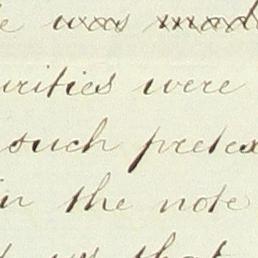 was made
urities were
such pretex
in the note
that